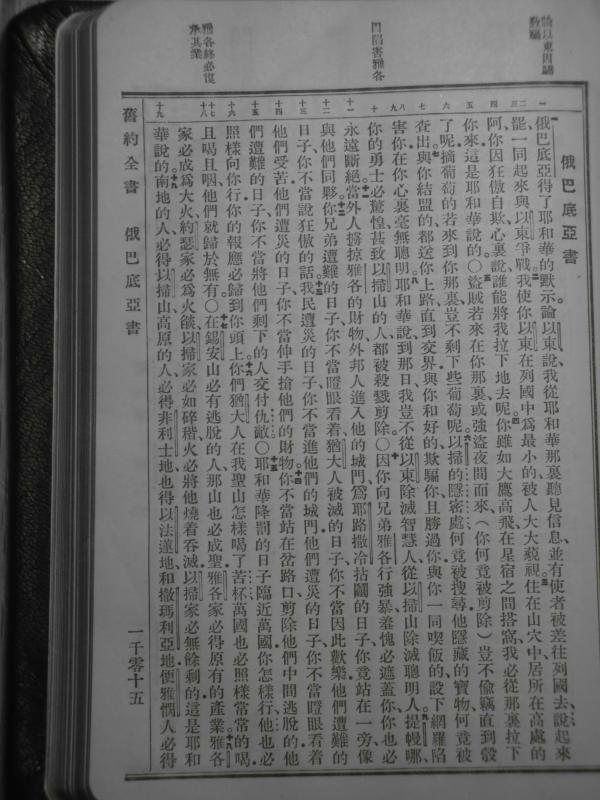 論以東因驕
俄巴底亞書
俄巴底亞得了耶和華的默示論以東說我從耶和華那裏聽見信息並有使者被差往列國去說起來
罷一同起來與以東爭戰我使你以東在列國中爲最小的被人大大藐視住在山穴中居所在高處的
阿你因狂傲自欺心裏說誰能將我拉下地去呢你雖如大鷹高飛在星宿之間搭窩我必從那裏拉下
你來這是耶和華說的○盜賊若來在你那裏或強盜夜間而來(你何竟被剪除)豈不偷竊直到彀
了呢摘葡萄的若來到你那裏豈不剩下些葡萄呢以掃的隱密處何竟被搜尋他隱藏的寶物何竟被
查出與你結盟的都送你上路直到交界與你和好的欺騙你且勝過你與你一同喫飯的設下網羅陷
害你在你心裏毫無聰明耶和華說到那日我豈不從以東除滅智慧人從以掃山除滅聰明人提幔哪
你的勇士必驚惶甚致以掃山的人都被殺戮剪除○因你向兄弟雅各行強暴羞愧必遮蓋你你也必
永遠斷絕當外人擄掠雅各的財物外邦人進入他的城門爲耶路撒冷拈鬮的日子你竟站在一旁像
與他們同夥你兄弟遭難的日子你不當瞪眼看着猶大人被滅的日子你不當因此歡樂他們遭難的
日子你不當說狂傲的話我民遭災的日子你不當進他們的城門他們遭災的日子你不當瞪眼看着
他們受苦他們遭災的日子你不當伸手搶他們的財物你不當站在岔路口剪除他們中間逃脫的他
們遭難的日子你不當將他們剩下的人交付仇敵○耶和華降罰的日子臨近萬國你怎樣行他也必
照樣向你行你的報應必歸到你頭上你們猶大人在我聖山怎樣喝了苦杯萬國也必照樣常常的喝
且喝且咽他們就歸於無有○在錫安山必有逃脫的人那山也必成聖雅各家必得原有的產業雅各
家必成爲大火約瑟家必爲火燄以掃家必如碎稭火必將他燒着吞滅以掃家必無餘剩的這是耶和
華說的南地的人必得以掃山高原的人必得非利士地也得以法蓮地和撒瑪利亞地便雅憫人必得
雅各終必復
承其業
舊約全書 俄巴底亞書 一千零十五